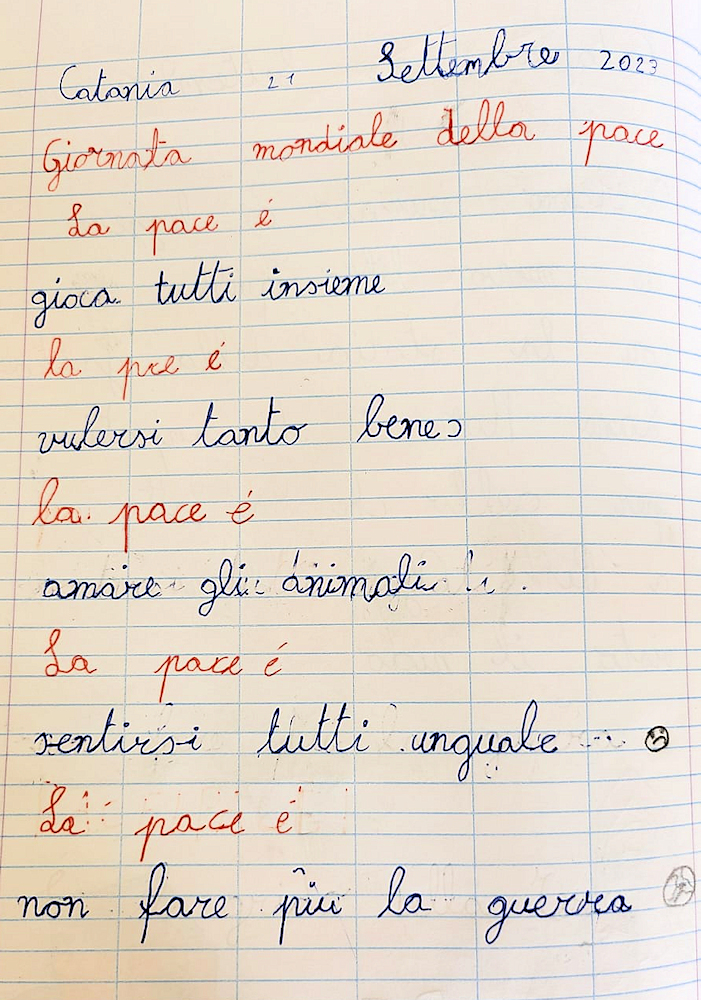 Catania 21 Settembre 2023
Giornata mondiale della pace
La pace é
gioca tutti insieme
la pce é
vulersi tanto bene
la pace é
amare gli animali
La pace é
sentirsi tutti unguale
La pace é
non fare piu la guerra